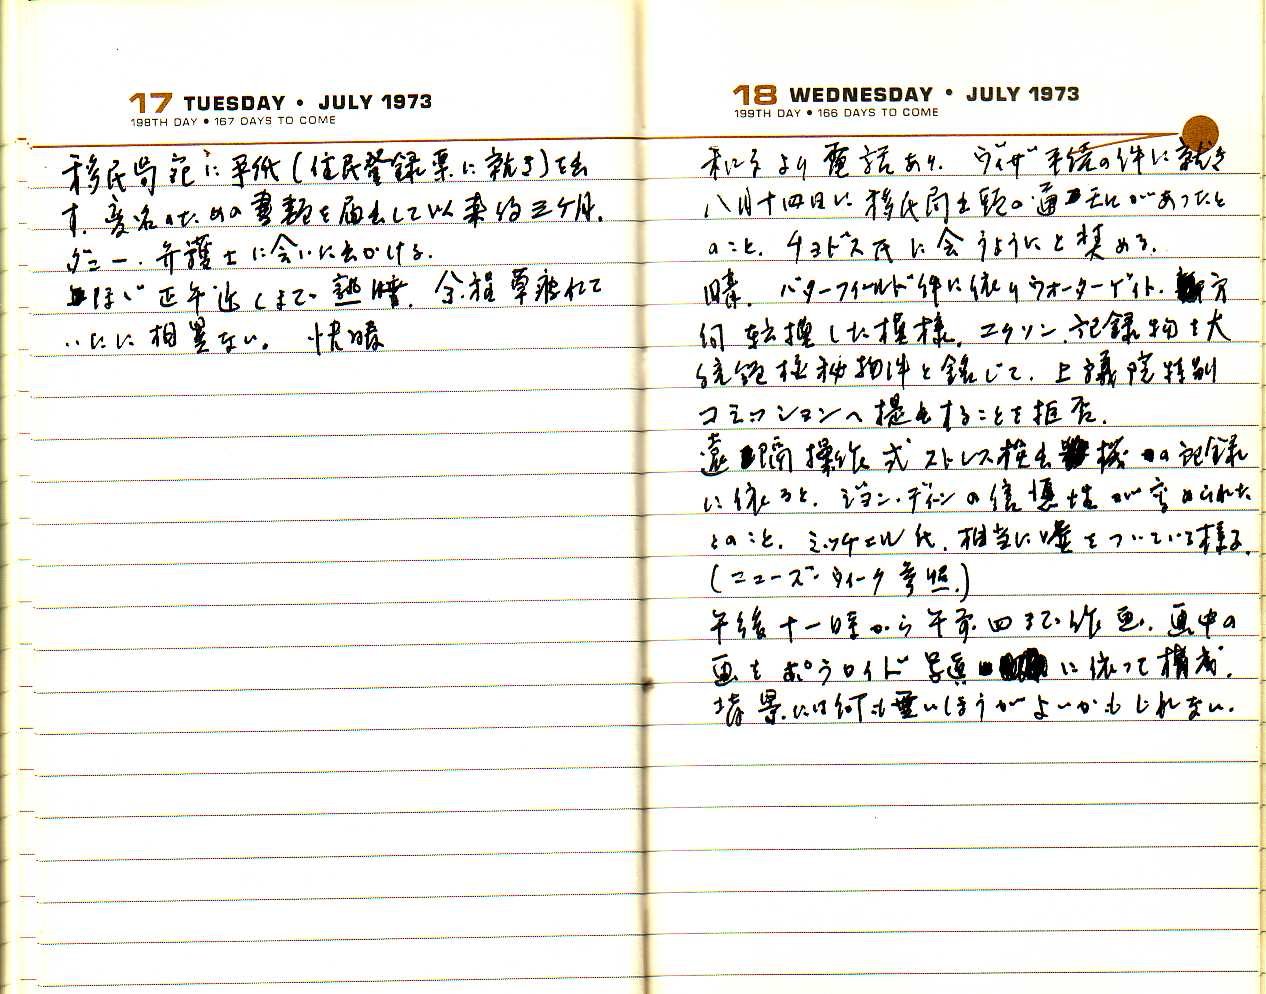 17 TUESDAY • JULY 1973
198TH DAY • 167 DAYS TO COME
移民局宛に手紙(住民登録票に就き)を出
す。変名のための書類を届出して以来約三ケ月。
ダニー、弁護士に会いに出かける。
ほゞ正午近くまで熟睡。余程草疲れて
いたに相異ない。 快晴
18 WEDNESDAY • JULY 1973
199TH DAY • 166 DAYS TO COME
より電話あり。ヴィザ手続の件に就き
八月十四日に移民局出頭の通知があったと
のこと。氏に会うようにと奨める。
晴。バターフィールド件に依りウォーターゲイト、方
向転換した模様。ニクソン、記録物を大
統領極秘物件と銘じて、上議院特別
コミッションへ提出することを拒否。
遠隔操作式ストレス検出機の記録
に依ると、ジョン・ディーンの信憑性が
とのこと。ミッチェル氏、相当に嘘をついている様子。
(ニューズ・ウィーク参照。)
午後十一時から午前四まで作画。画中の
画をポラロイド写真に依って構成。
背景には何も無いほうがよいかもしれない。